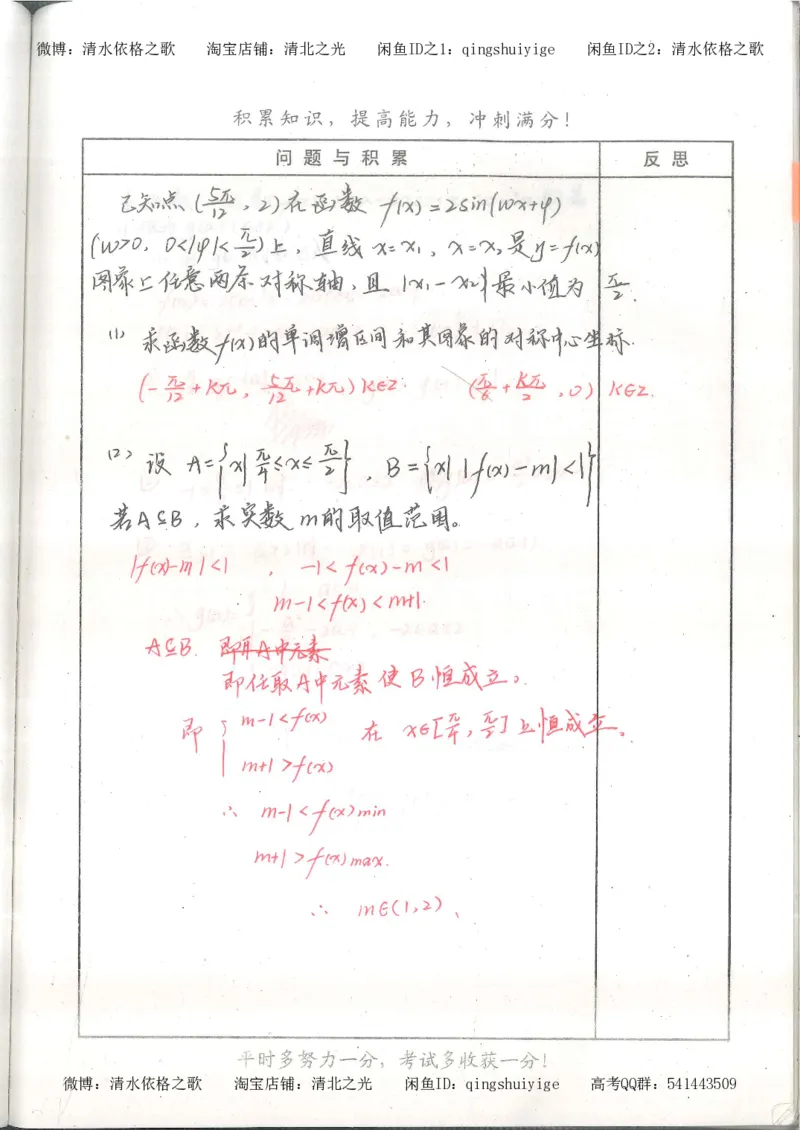 微博：清水依格之歌 淘宝店铺：清北之光 闲鱼ID之1：qingshuiyige 闲鱼ID之2：清水依格之歌
积累知识，提高能力，冲刺满分！
问题与积累 反思
已知点(5π/12, 2)在函数 f(x)=2sin(wx+φ)
(w>0, 0<|φ|<π/2)上，直线 x=x₁, x=x₂是y=f(x)
图象上任意两条对称轴，且 |x₁-x₂| 最小值为 π/2.
(1) 求函数f(x)的单调增区间和其图象的对称中心坐标.
(-π/12+kπ, 5π/12+kπ) k∈Z. (π/6+kπ/2, 0) k∈Z.
(2) 设 A={x|π/4≤x≤π/2}, B={x||f(x)-m|<1}
若A⊆B，求实数m的取值范围。
|f(x)-m|<1, -1<f(x)-m<1
m-1<f(x)<m+1.
A⊆B. 即取A中元素
即任取A中元素使B恒成立。
即 { m-1<f(x) 在 x∈[π/4, π/2]上恒成立。
m+1>f(x)
∴ m-1<f(x)min
m+1>f(x)max.
∴ m∈(1,2).
平时多努力一分，考试多收获一分！
微博：清水依格之歌 淘宝店铺：清北之光 闲鱼ID：qingshuiyige 高考QQ群：541443509